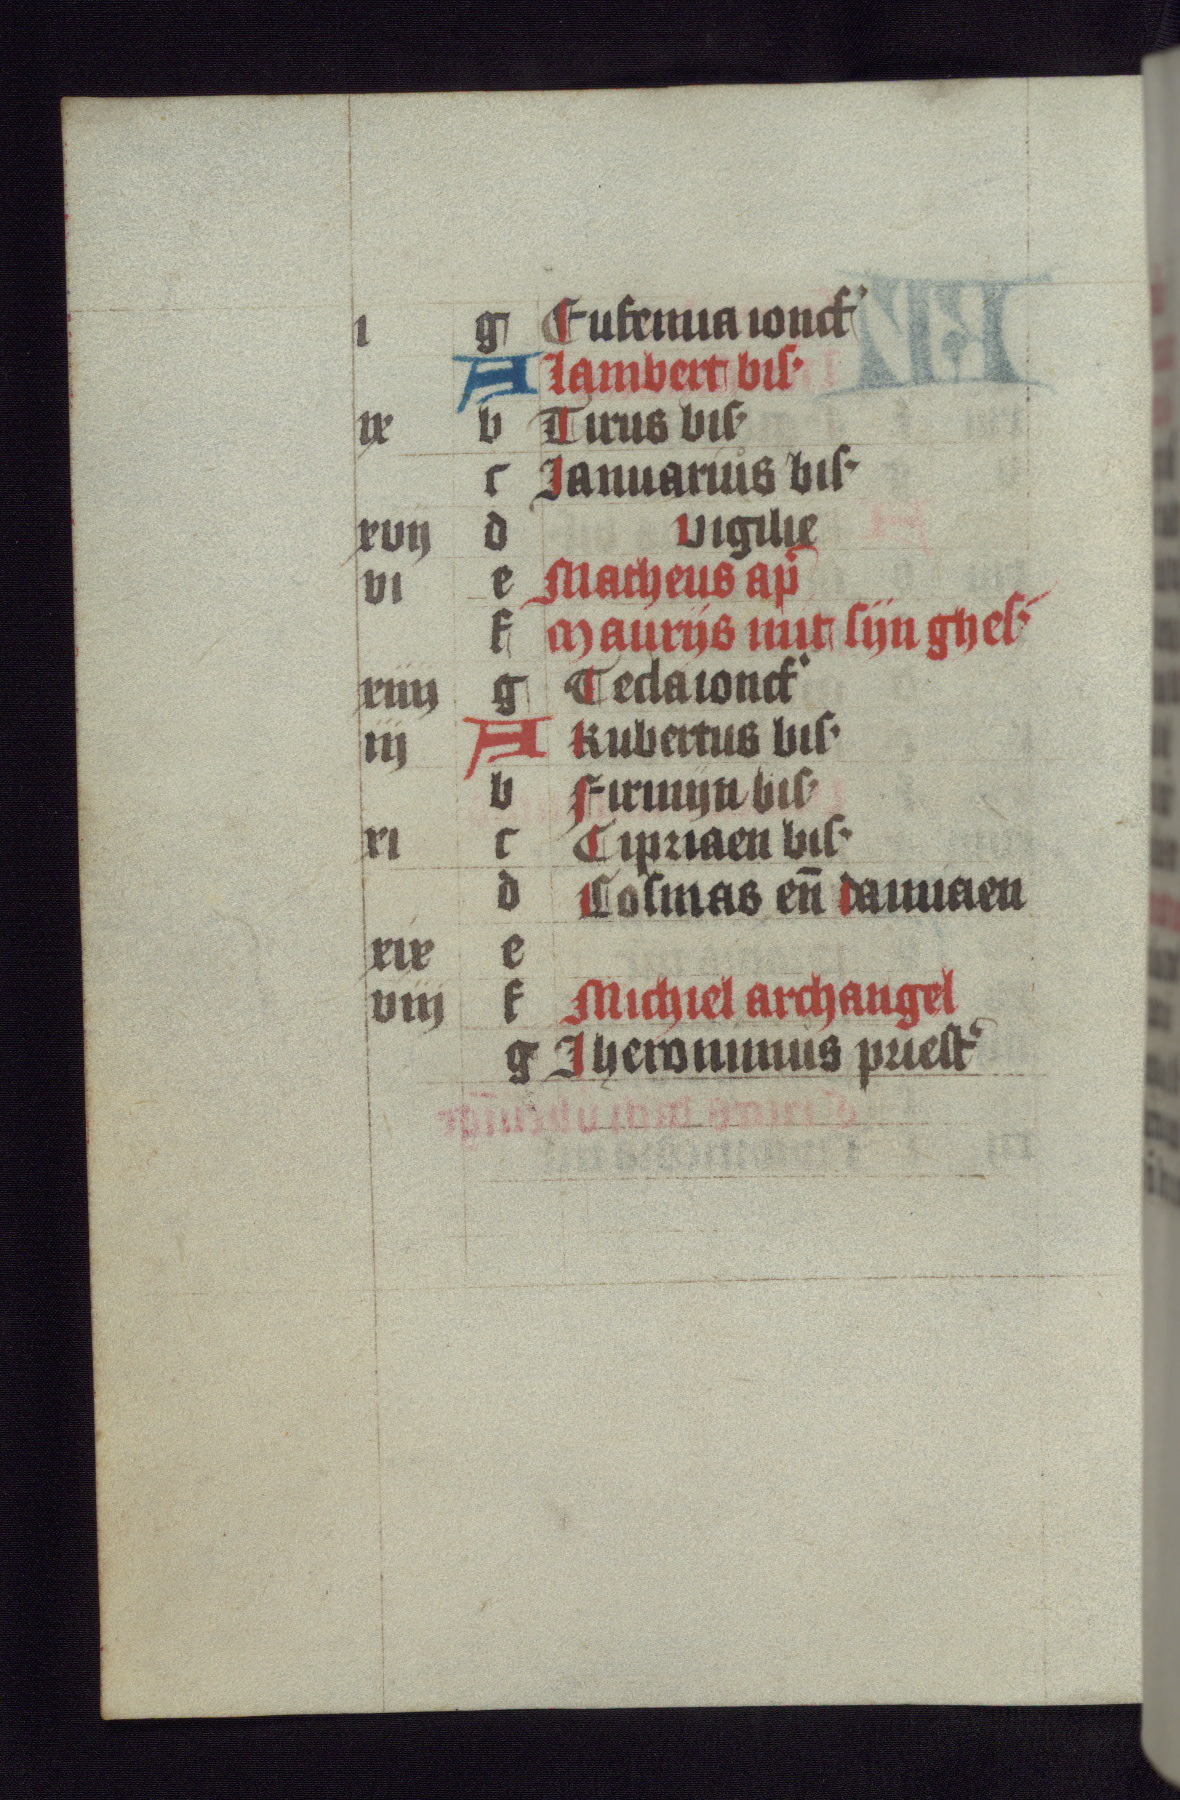 i g Eufemia ioncf'
A lambert bis·
ix b Tirus bis·
c Januarius bis·
xvij d vigilie
vi e Matheus ap̄
f Maurijs mit sijn ghes·
xiiij g Tecla ioncf'
iij A Rubertus bis·
b Firmijn bis·
xi c Cipriaen bis·
d Cosmas en̄ damiaen
xix e
viij f Michiel archangel
g Jheronimus priest'